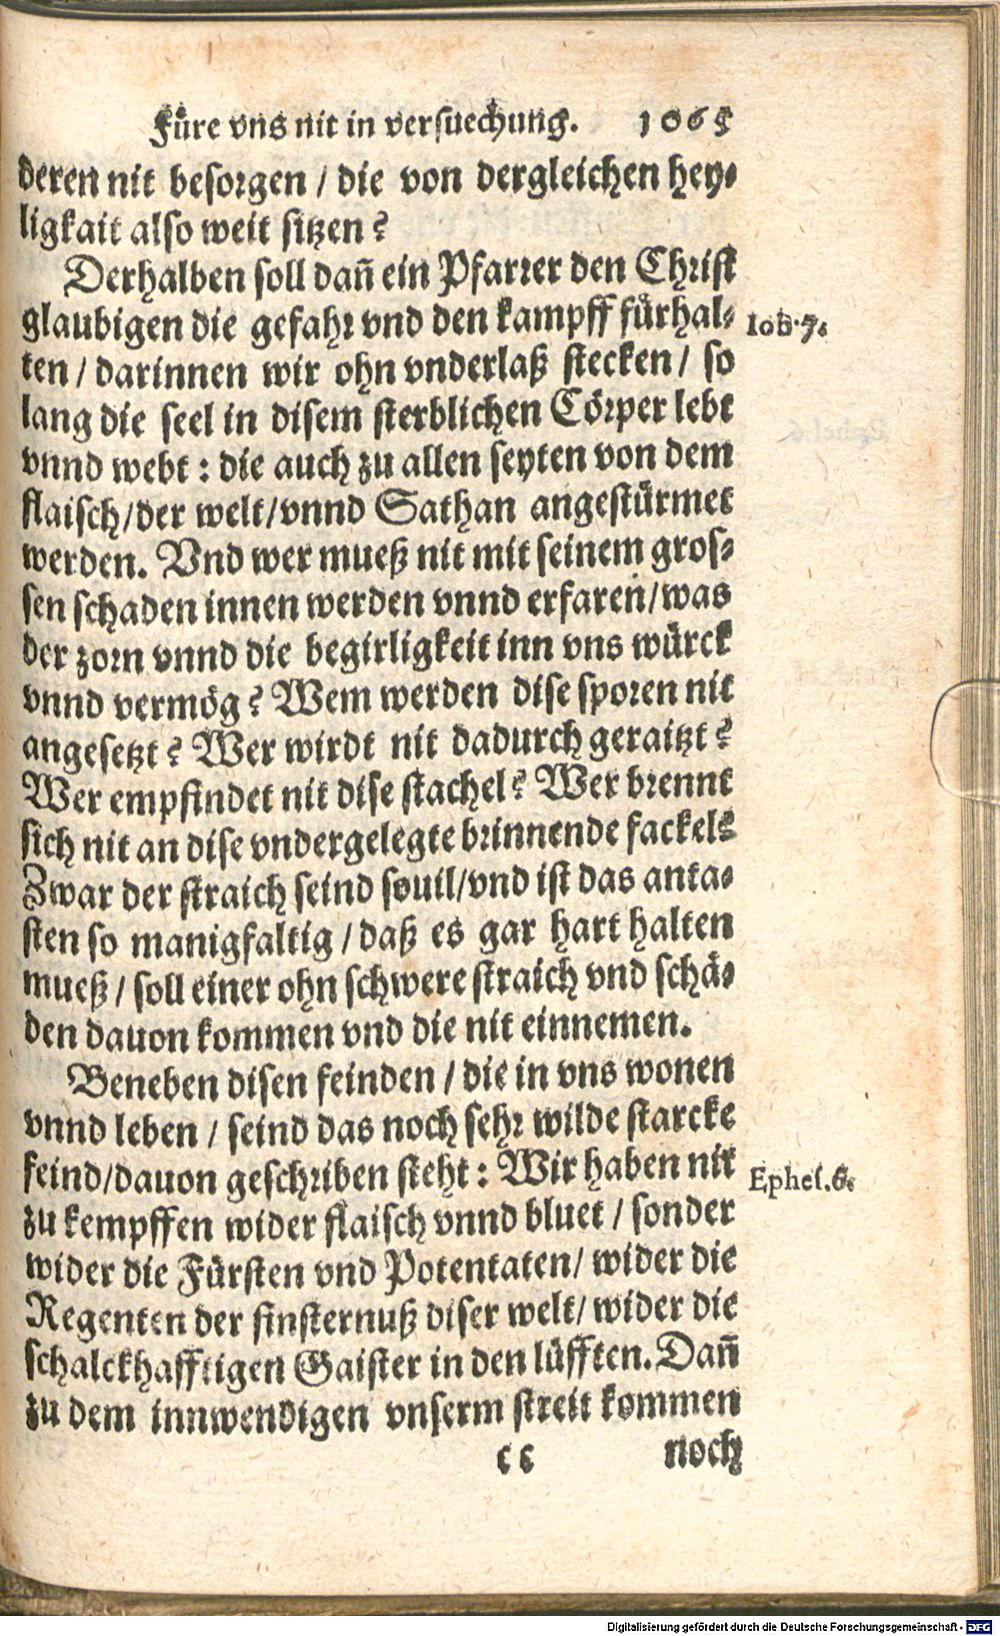 Fuͤre vns nit in versuechung. 1065
deren nit besorgen / die von dergleichen hey⸗
ligkait also weit sitzen?
Derhalben soll dañ ein Pfarrer den Christ
glaubigen die gefahr vnd den kampff fürhal⸗
Iob.7.
ten / darinnen wir ohn vnderlaß stecken / so
lang die seel in disem sterblichen Cörper lebt
vnnd webt : die auch zu allen seyten von dem
flaisch/der welt/vnnd Sathan angestürmet
werden. Vnd wer mueß nit mit seinem gros⸗
sen schaden innen werden vnnd erfaren/was
der zorn vnnd die begirligkeit inn vns würck
vnnd vermög? Wem werden dise sporen nit
angesetzt? Wer wirdt nit dadurch geraitzt?
Wer empfindet nit dise stachel? Wer brennt
sich nit an dise vndergelegte brinnende fackel?
Zwar der straich seind souil/vnd ist das anta⸗
sten so manigfaltig / daß es gar hart halten
mueß / soll einer ohn schwere straich vnd schä⸗
den dauon kommen vnd die nit einnemen.
Beneben disen feinden / die in vns wonen
vnnd leben / seind das noch sehr wilde starcke
feind/dauon geschriben steht : Wir haben nit
Ephes.6.
zu kempffen wider flaisch vnnd bluet / sonder
wider die Fürsten vnd Potentaten/ wider die
Regenten der finsternuß diser welt/ wider die
schalckhafftigen Gaister in den lüfften. Dañ
zu dem innwendigen vnserm streit kommen
cc noch
Digitalisierung gefördert durch die Deutsche Forschungsgemeinschaft - DFG